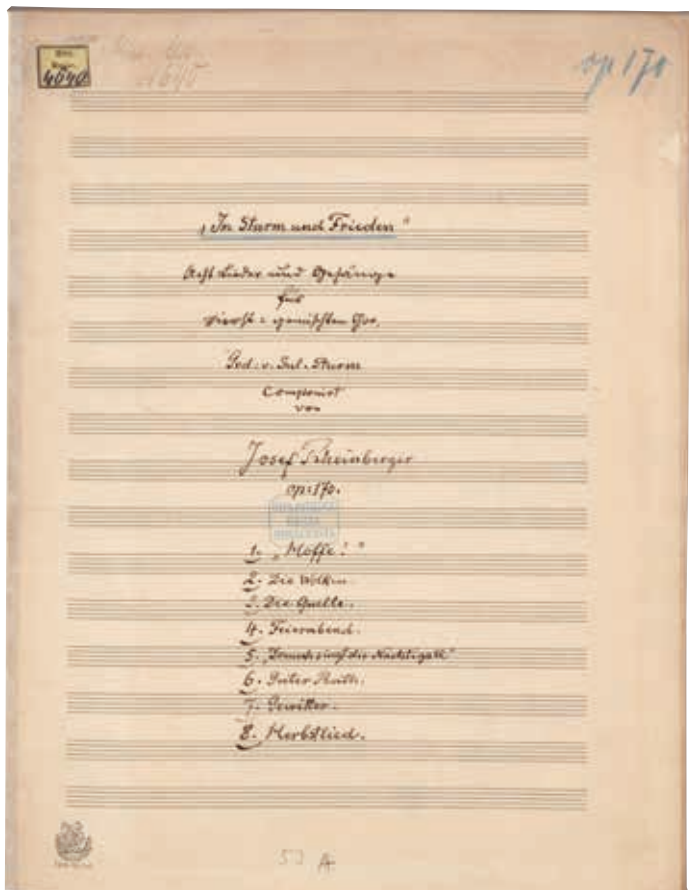 4640
4640
op 170
„In Sturm und Frieden“
Acht Lieder und Gesänge
für
vierst = gemischten Chor.
Ged. v. Jul. Sturm
Componirt
von
Josef Rheinberger
op: 170.
1. „Hoffe!“
2. Die Wolken.
3. Die Quelle.
4. Feierabend.
5. die Nachtigall“
6. Guter Rath.
7. Gewitter.
8. Herbstlied.
53 A